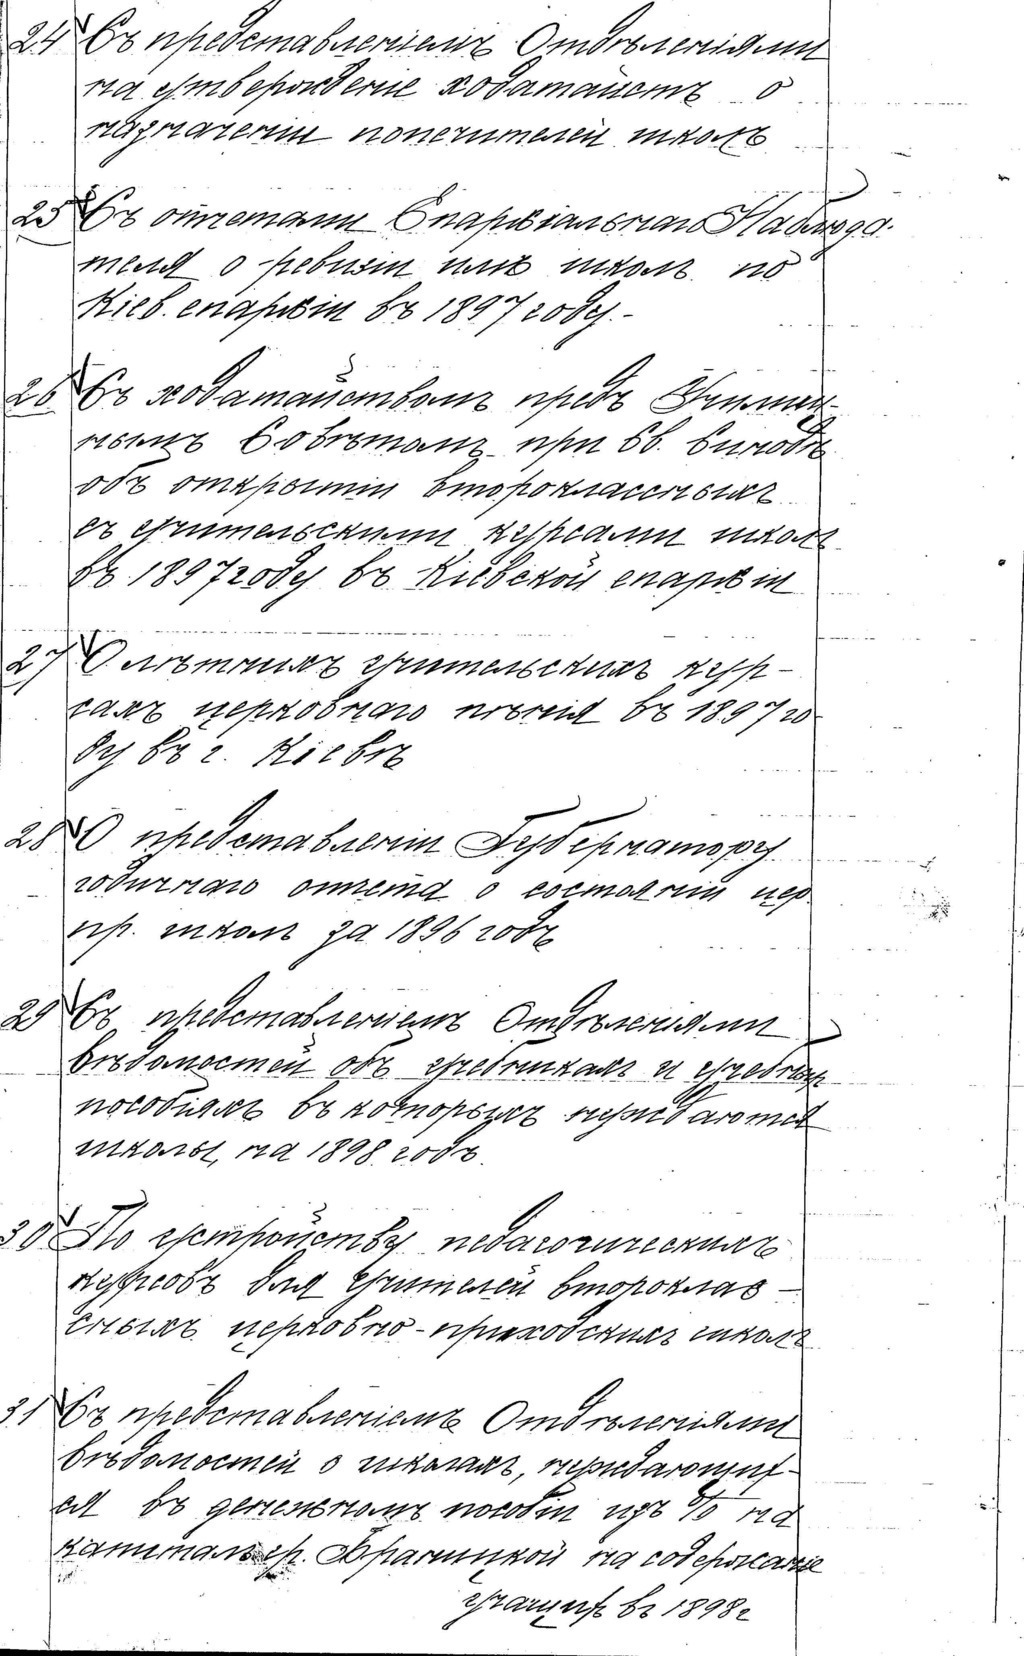 24 Съ представленіемъ Отдѣленіями
на утвержденіе ходатайствъ о
назначеніи попечителей школъ
25 Съ отчетами Епархіальнаго Наблюда-
теля о ревизіи имъ школъ по
Кіев. епархіи въ 1897 году.-
26 Съ ходатайствомъ предъ Училищ-
нымъ Совѣтомъ при Св. Синодѣ
объ открытіи второклассныхъ
съ учительскими курсами школъ
въ 1897 году въ Кіевской епархіи
27 О лѣтнихъ учительскихъ кур-
сахъ церковнаго пѣнія въ 1897 го
ду въ г. Кіевѣ
28 О представленіи Губернатору
годичнаго отчета о состояніи цер.
пр. школъ за 1896 годъ
29 Съ представленіемъ Отдѣленіями
вѣдомостей объ учебникахъ и учебных
пособіяхъ въ которыхъ нуждаются
школы, на 1898 годъ.
30 По устройству педагогическихъ
курсовъ для учителей второклас-
сныхъ церковно-приходскихъ школъ
31 Съ представленіемъ Отдѣленіями
вѣдомостей о школахъ, нуждающих-
ся въ денежномъ пособіи изъ % на
капиталъ гр. Браницкой на содержаніе
учащихъ въ 1898 г